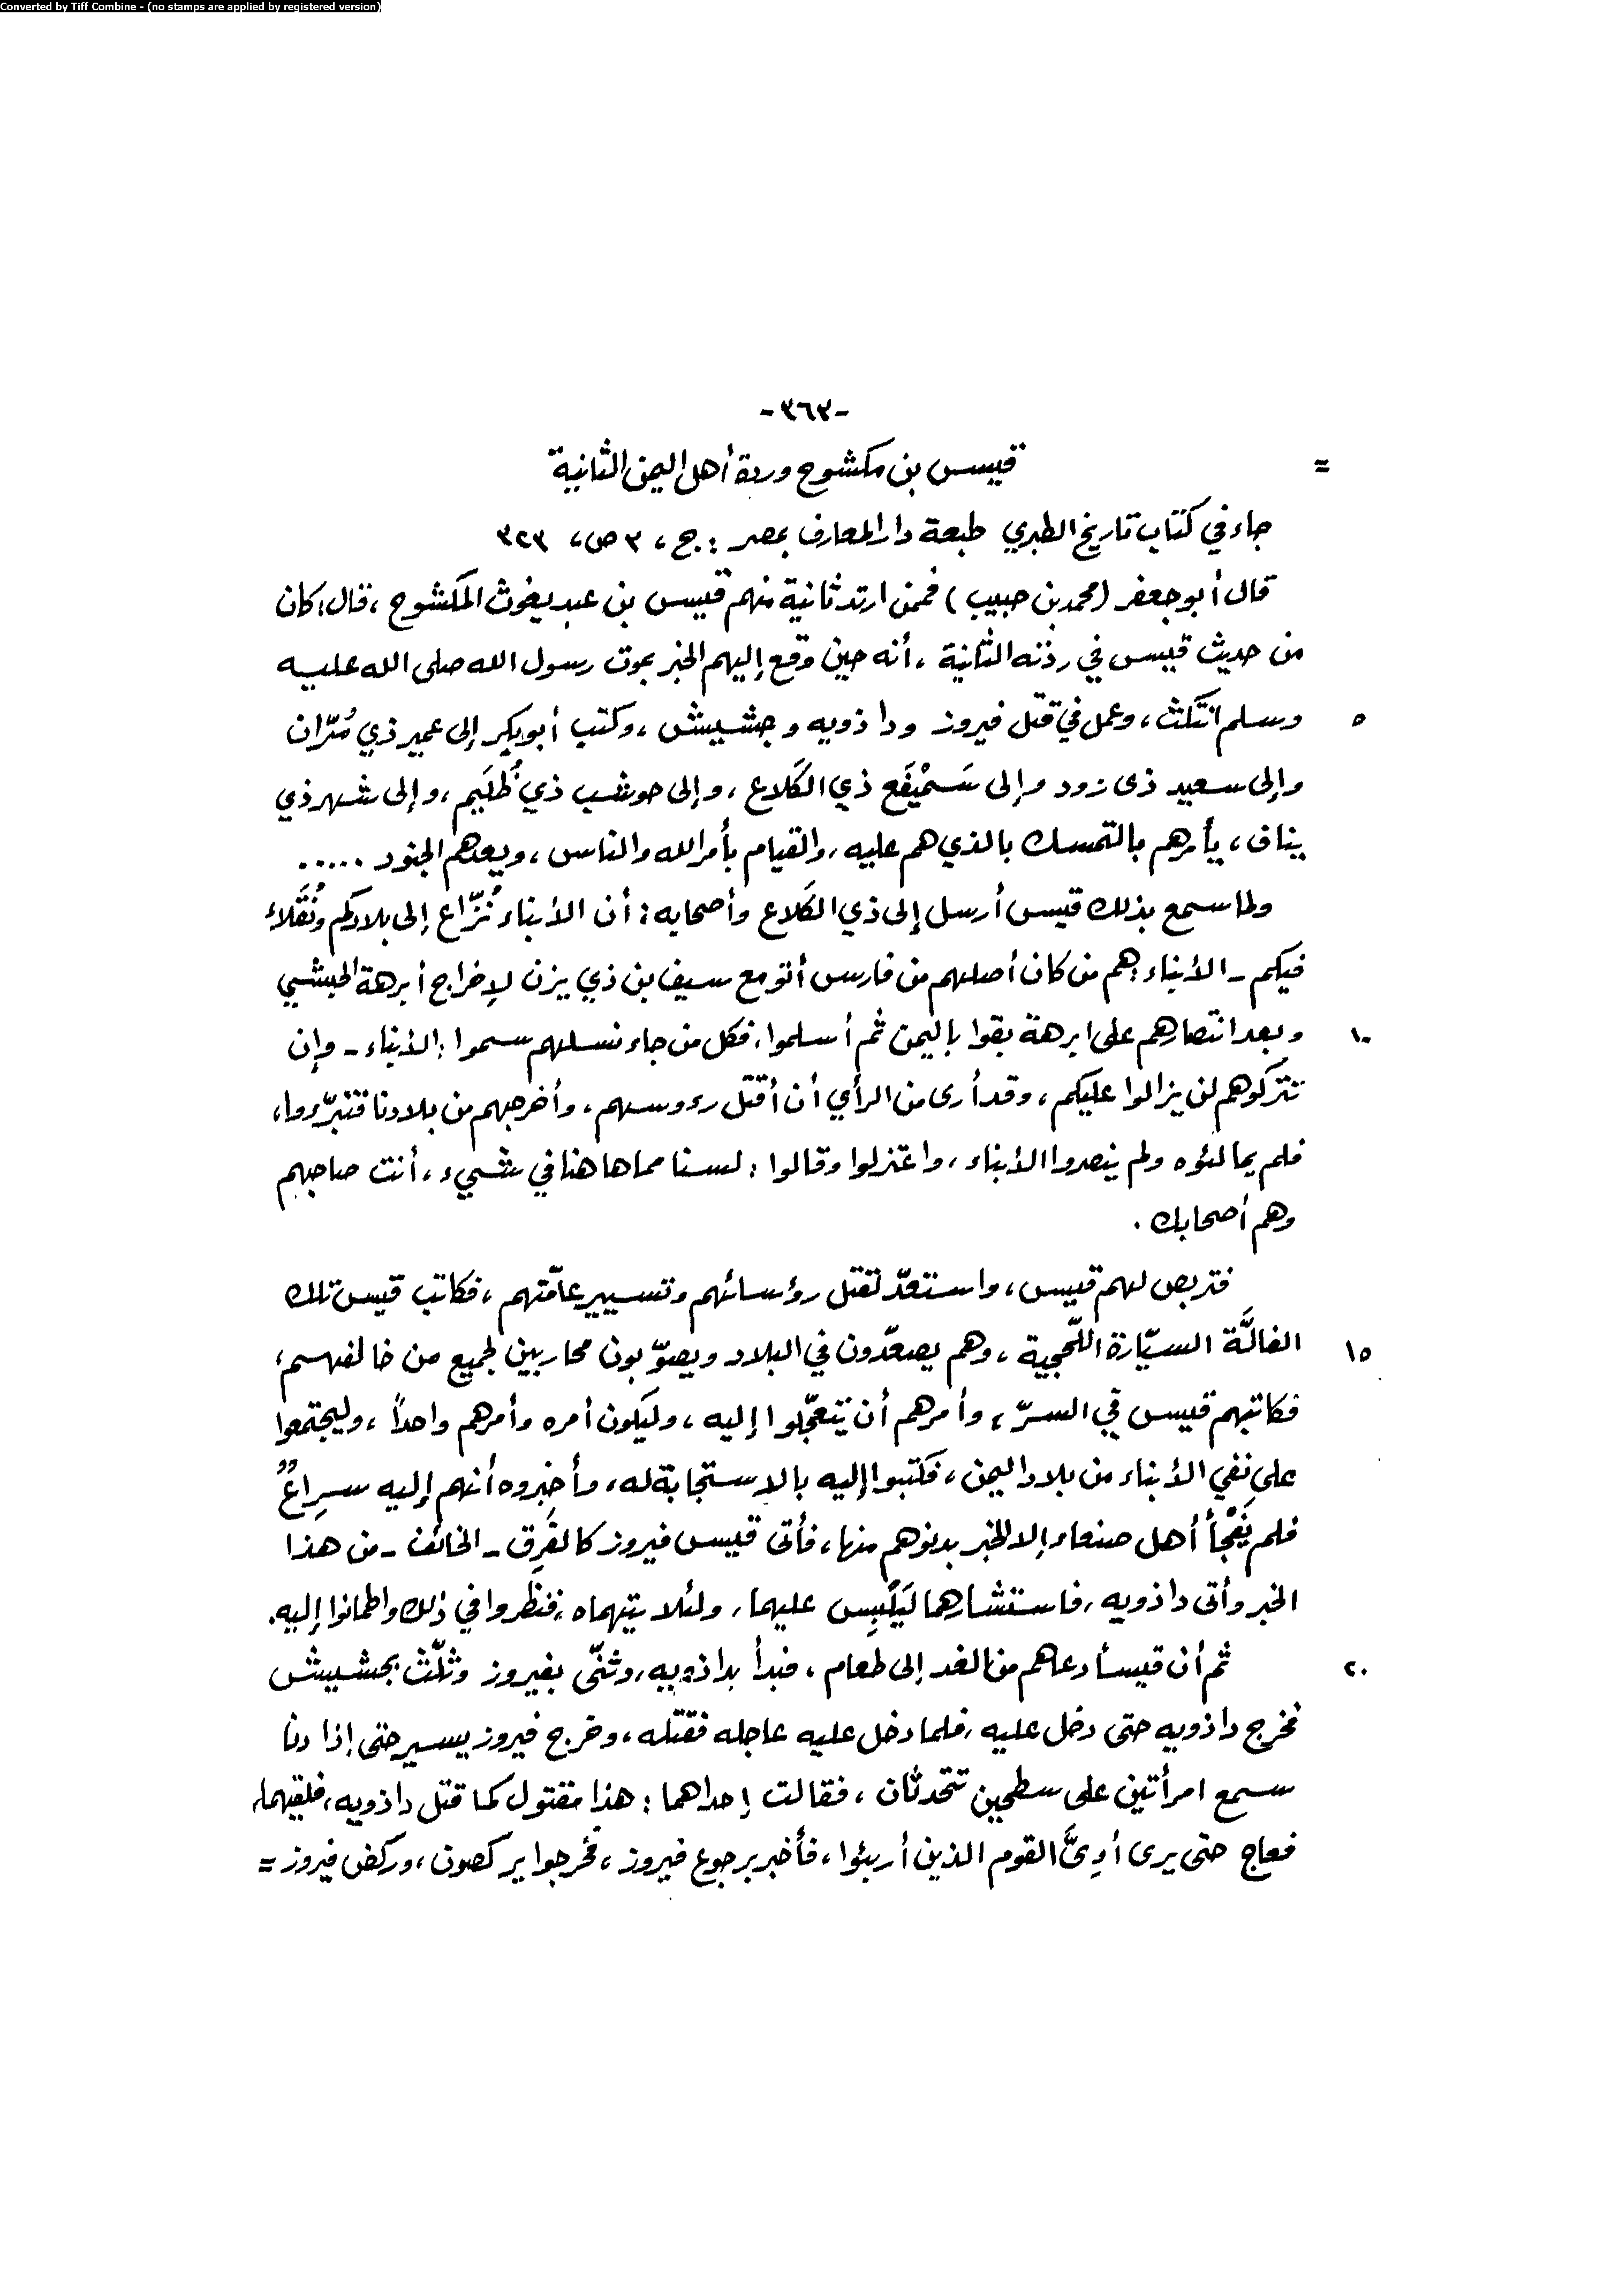 Converted by Tiff Combine - (no stamps are applied by registered version)
-٣٦٣-
= قيس بن مكشوح وردة أهل اليمن الثانية
جاء في كتاب تاريخ الطبري طبعة دار المعارف بمصر : ج ، ٣ ص ، ٣٢٣
قال أبو جعفر (محمد بن حبيب) فممن ارتد ثانية منهم قيس بن عبد يغوث المكشوح ، قال : كان
من حديث قيس في ردّته الثانية ، أنه حين وقع إليهم الخبر بموت رسول الله صلى الله عليه
٥ وسلم انتكث ، وعمل في قتل فيروز وداذويه وجشيش ، وكتب أبو بكر إلى عمير ذي مُرّان
وإلى سعيد ذى زود وإلى سَمَيْفَع ذي الكَلاع ، وإلى حوشب ذي ظُلَيم ، وإلى شهر ذي
يناف ، يأمرهم بالتمسك بالذي هم عليه ، والقيام بأمر الله والناس ، ويعدهم الجنود .....
ولما سمع بذلك قيس أرسل إلى ذي الكَلاع وأصحابه : أن الأبناء نُزّاع إلى بلادكم ونُقَلاء
فيكم - الأبناء : هم من كان أصلهم من فارس أتو مع سيف بن ذي يزن لإخراج أبرهة الحبشي
١٠ وبعد انتصارهم على ابرهة بقوا باليمن ثم أسلموا ، فكل من جاء نسلهم سموا : الأبناء - وإن
تتركوهم لن يزالوا عليكم ، وقد أرى من الرأي أن أقتل رءوسهم ، وأخرجهم من بلادنا فتبرّءوا ،
فلم يمالئوه ولم ينصروا الأبناء ، واعتزلوا وقالوا : لسنا مما هاهنا في شيء ، أنت صاحبهم
وهم أصحابك .
فتربص لهم قيس ، واستعدّ لقتل رؤسائهم وتسيير عامّتهم ، فكاتب قيس تلك
١٥ الفالَّة السيّارة اللّحجية ، وهم يصعّدون في البلاد ويصوّبون محاربين لجميع من خالفهم ،
فكاتبهم قيس في السرّ ، وأمرهم أن يتعجّلوا إليه ، وليكون أمره وأمرهم واحداً ، وليجتمعوا
على نفي الأبناء من بلاد اليمن ، فكتبوا إليه بالاستجابة له ، وأخبروه أنهم إليه سِراعٌ
فلم يَفْجأ أهل صنعاء إلا الخبر بدنوهم منها ، فأتى قيس فيروز كالفَرِق - الخائف - من هذا
الخبر وأتى داذويه ، فاستشارهما ليَلْبِس عليهما ، ولئلا يتهماه ، فنظروا في ذلك واطمانوا إليه .
٢٠ ثم أن قيسأ دعاهم من الغد إلى طعام ، فبدأ بداذويه ، وثنّى بفيروز وثلّث بجشيش
فخرج داذويه حتى دخل عليه ، فلما دخل عليه عاجله فقتله ، وخرج فيروز يسير حتى إذا دنا
سمع امرأتين على سطحين تتحدثان ، فقالت إحداهما : هذا مقتول كما قتل داذويه ، فلقيهما ،
فعاج حتى يرى أويَّ القوم الذين أربئوا ، فأخبر برجوع فيروز ، فخرجوا يركضون ، وركض فيروز =